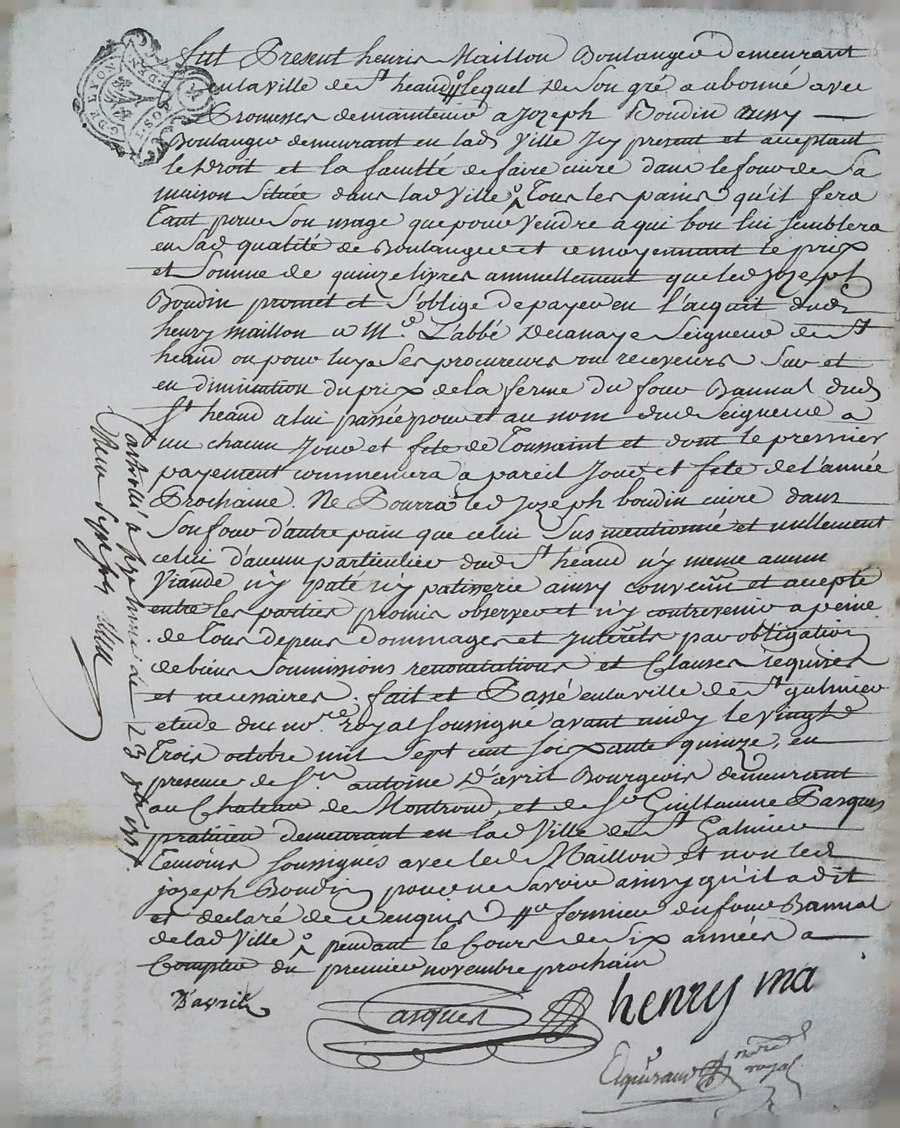 fut Present henris Maillon Boulanger demeurant
en la ville de St heand lequel de Son gré a abonné avec
Promesses de maintenir a Jozeph Boudin aussy
Boulanger demeurant en lad Ville Icy present et acceptant
le Droit et la faculté de faire cuire dans le four de Sa
maison Située dans lad Ville Tous les pains qu'il fera
tant pour Son usage que pour Vendre a qui bon lui Semblera
en Sad qualité de Boulanger et ce moyennant le prix
et Somme de quinze livres annuellement que led Jozeph
Boudin promet et S'oblige de payer en l'acquit dud
henry maillon a Mre L'abbé Seigneur de St
heand ou pour luy a Ses procureurs ou receveurs Sur et
en diminution du prix de la ferme du four Bannal dud
St heand a lui passée pour et au nom dud Seigneur a
un chacun Jour et fete de Toussaint et dont le premier
payement commencera a pareil Jour et fete de l'année
Prochaine. Ne Pourra led Jozeph boudin cuire dans
Son four d'autre pain que celui Sus mentionné et nullement
celui d'aucun particulier dud St heand n'y meme aucun
Viande n'y paté n'y patisserie ainsy convenu et accepté
entre les parties promis observer et n'y contrevenir a peine
de tous depens dommages et Interets par obligation
de biens Soumissions renonciations et Clauses requises
et necessaires. fait et Passé en la ville de St galmier
etude du nore royal Soussigné avant midy le vingt
Trois octobre mil Sept cent Soixante quinze, en
presence de Sr antoine D'avril Bourgeois demeurant
au Chateau de Montrond, et de Sr Guillaume Pasques
praticien demeurant en lad Ville de St Galmier
temoins Soussignés avec led Maillon et non led
jozeph Boudin pour ne Savoir ainsy qu'il a dit
et declaré de ce enquis fermier du four Bannal
de lad Ville pendant le Cours de Six années a
Compter du premier novembre prochain
D'avril
Pasques
henry ma
nore
royal
Controllé a